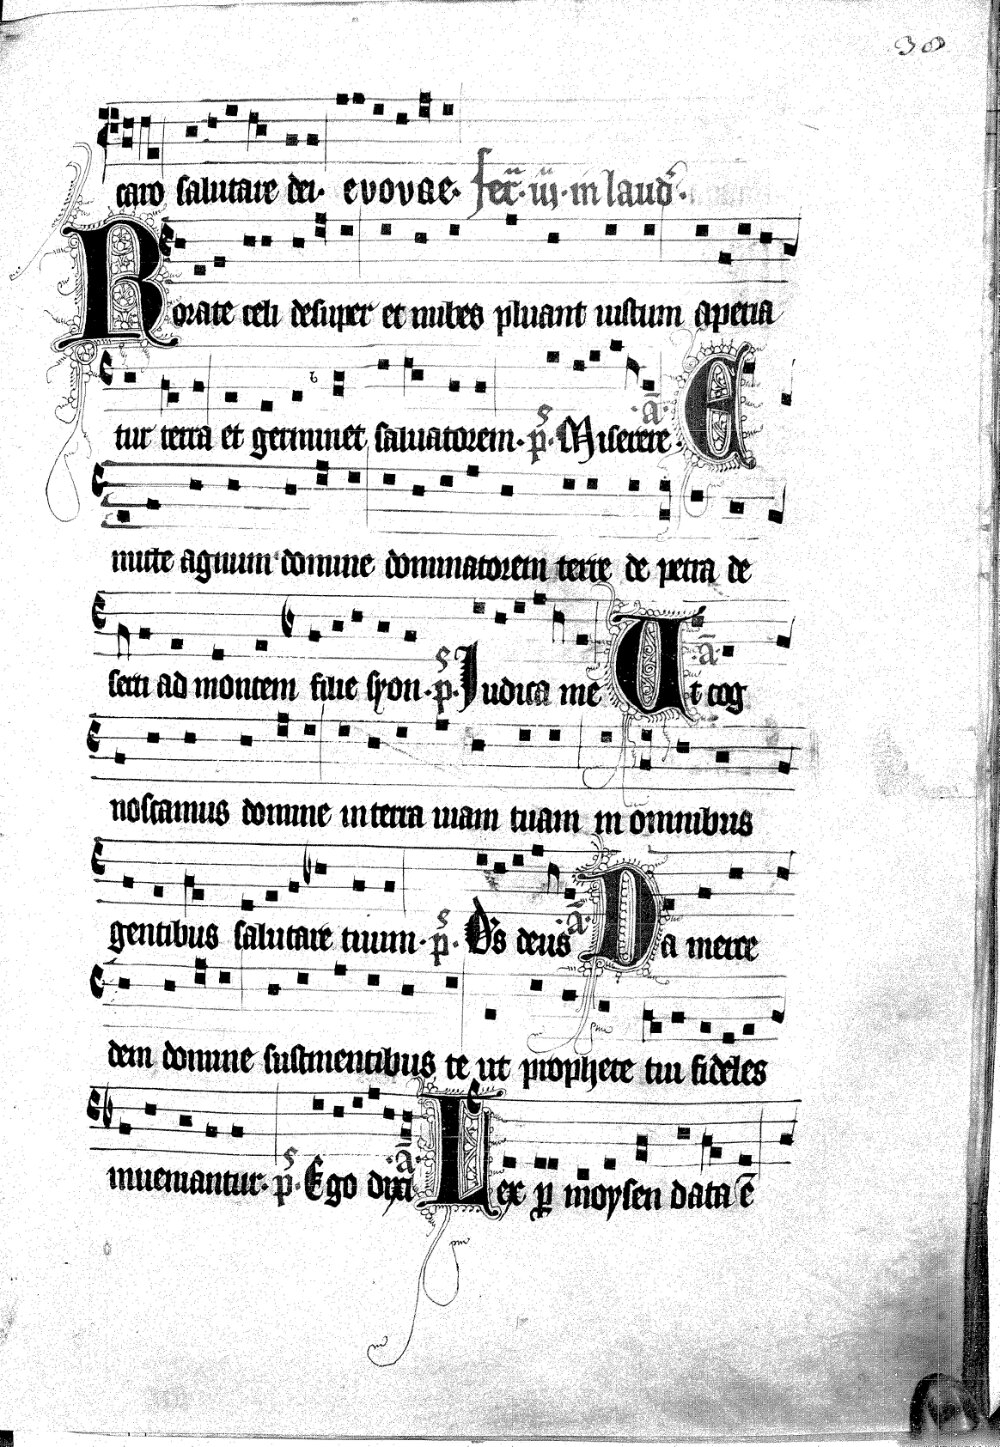 38
caro salutare dei. evovae. fer. iij. in laud.
Rorate celi desuper et nubes pluant iustum aperia
tur terra et germinet saluatorem. ps. Miserere. a. E
mitte agnum domine dominatorem terre de petra de
serti ad montem filie syon. ps. Judica me a. Ut cog
noscamus domine in terra uiam tuam in omnibus
gentibus salutare tuum. ps. Ds deus a. Da merce
dem domine sustinentibus te ut prophete tui fideles
inueniantur. ps. Ego dixi a. Lex p moysen data ē